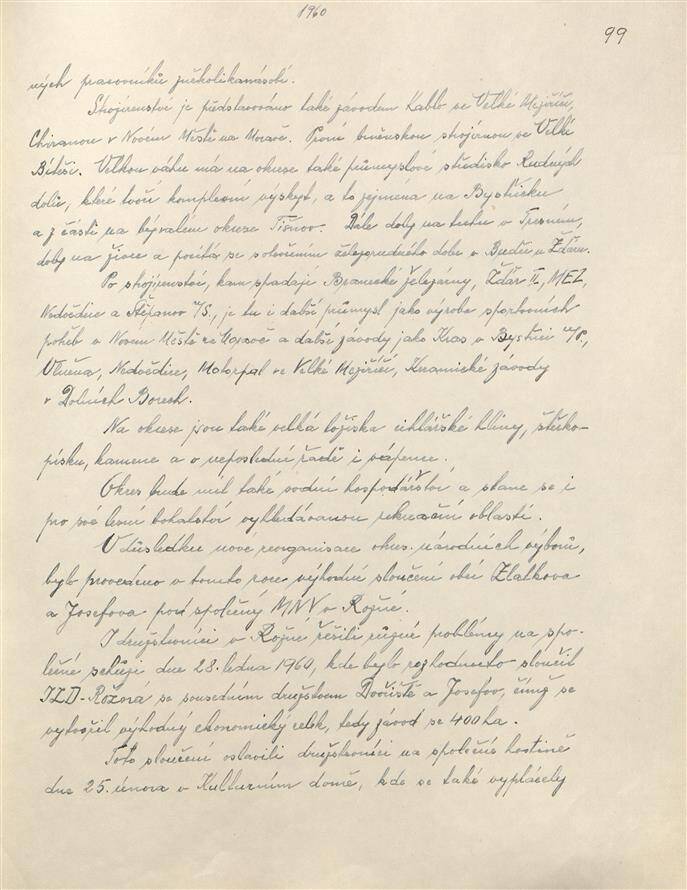 1960
99
ných pracovníků zněkolikanásobí.
Strojírenství je představováno také závodem Kablo ve Velké Meziříčí,
Chiranou v Novém Městě na Moravě. První brněnskou strojírnou ve Velké
Bíteši. Velkou váhu má na okrese také průmyslové středisko Rudných
dolů, které tvoří komplexní výskyt, a to zejména na Bystřicku
a z části na bývalém okrese Tišnov. Dále doly na tuhu v
doly na živce a počítá se s otevřením železorudného dolu v Budči u Žďáru.
Po strojírenství, kam spadají Branecké železárny, Žďár II, MEZ,
Nedvědice a Štěpánov n/S., je tu i další průmysl jako výroba sportovních
potřeb v Novém Městě na Moravě a další závody jako Kras v Bystřici n/P.,
Vlněna, Nedvědice, Motorpal ve Velké Meziříčí, Keramické závody
v Dolních Borech.
Na okrese jsou také velká ložiska cihlářské hlíny, štěrko-
písku, kamene a v neposlední řadě i vápence.
Okres bude míti také vodní hospodářství a stane se i
pro své lesní bohatství vyhledávanou rekreační oblastí.
V důsledku nové reorganisace okres. národních výborů,
bylo provedeno v tomto roce výhodné sloučení obcí Zlatkova
a Josefova pod společný MNV v Rožné.
I družstevníci v Rožné řešili různé problémy na spo-
lečné schůzi dne 28. ledna 1960, kde bylo rozhodnuto sloučit
JZD-Rožná se sousedním družstvem Dvořiště a Josefov, čímž se
vytvořil výhodný ekonomický celek, tedy závod se 400 ha.
Toto sloučení oslavili družstevníci na společné hostině
dne 25. února v Kulturním domě, kde se také vyplácely